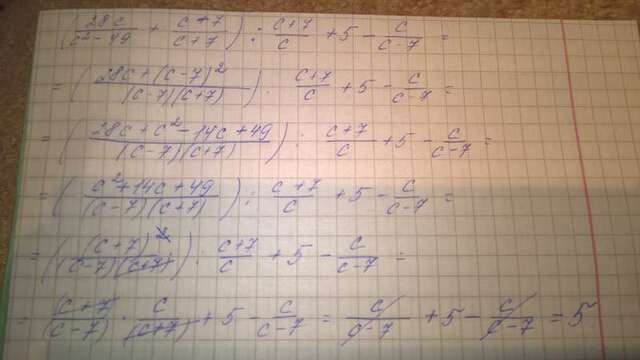 (28c/(c²-49) + (c-7)/(c+7)) · c/(c+7) + 5 - c/(c-7) =
= ((28c+(c-7)²)/((c-7)(c+7))) · c/(c+7) + 5 - c/(c-7) =
= ((28c+c²-14c+49)/((c-7)(c+7))) · c/(c+7) + 5 - c/(c-7) =
= ((c²+14c+49)/((c-7)(c+7))) · c/(c+7) + 5 - c/(c-7) =
= ((c+7)²/((c-7)(c+7))) · c/(c+7) + 5 - c/(c-7) =
= (c+7)/(c-7) · c/(c+7) + 5 - c/(c-7) = c/(c-7) + 5 - c/(c-7) = 5